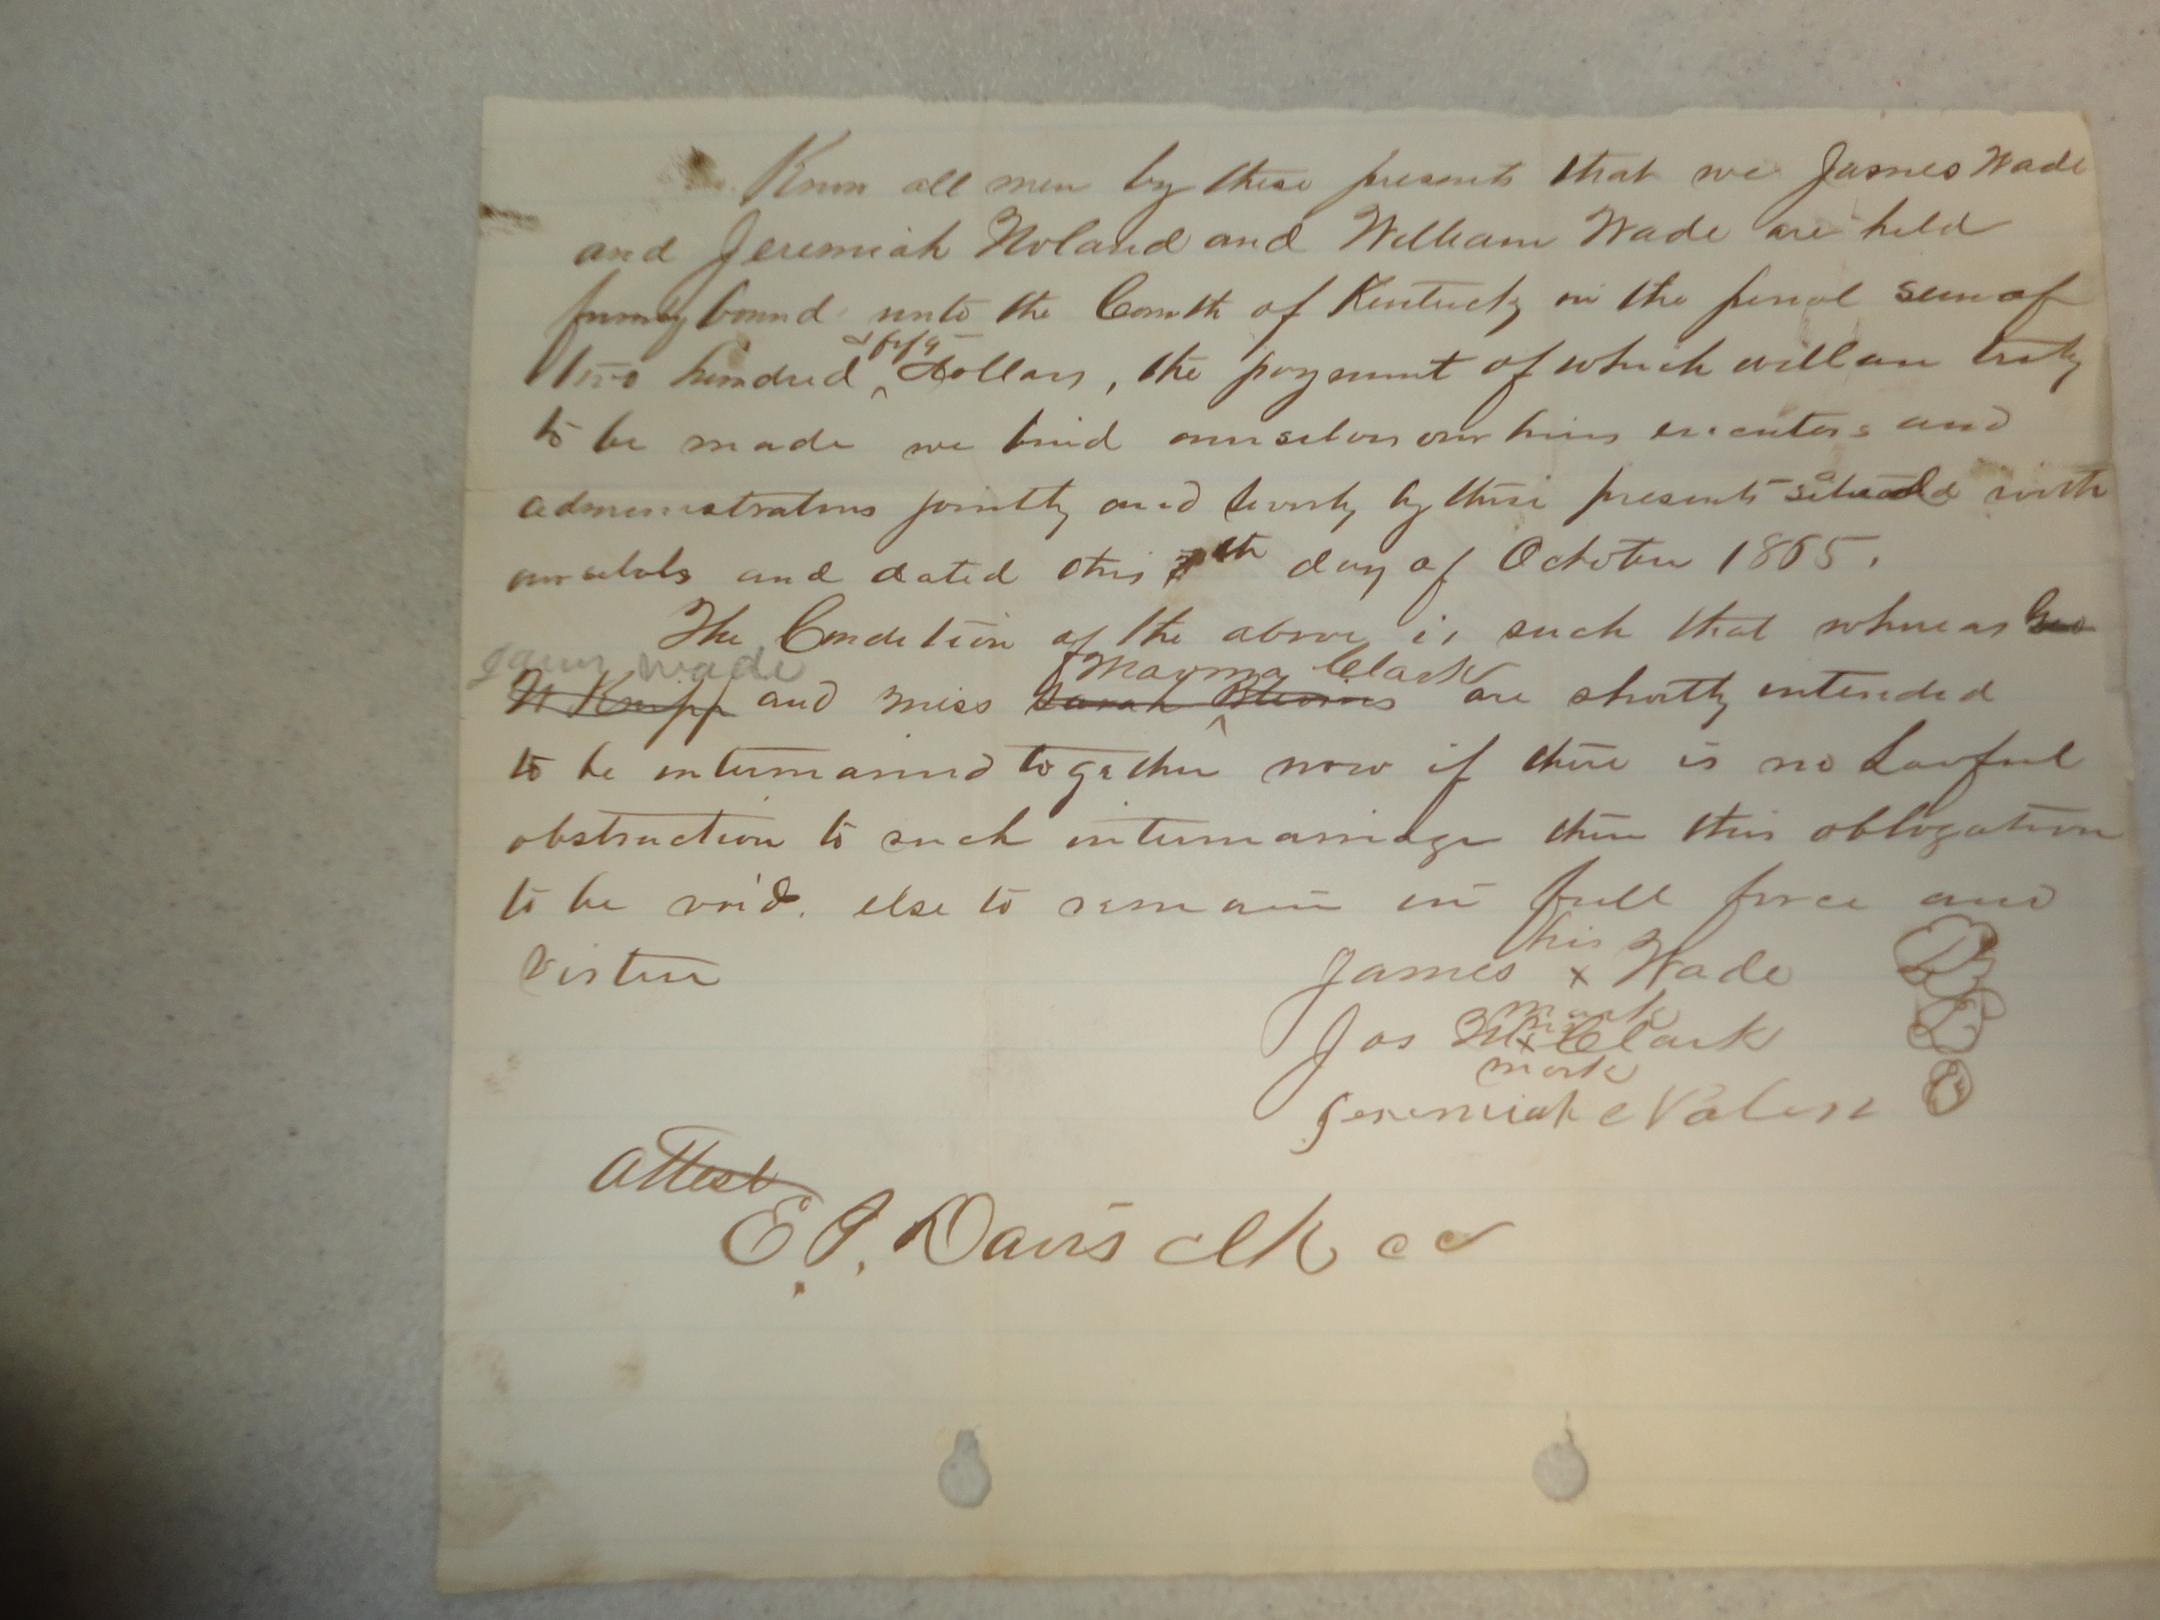 Know all men by these presents that we James Wade
and Jeremiah Noland and William Wade are held
firmly bound unto the Comth of Kentucky in the penal sum of
two hundred & fifty Dollars, the payment of which well an truly
to be made we bind ourselves our heirs executors and
administrators jointly and sevrly by these presents sealed with
our seals and dated this th day of October 1865.
The Condition of the above is such that whereas Geo
James Wade
W Knipp and miss Sarah are shortly intended
Clark
to be intermarried together now if there is no Lawful
obstruction to such intermarriage then this obligation
to be void. else to remain in full force and
virtue
his
James x Wade
mark
Jos M x Clark
mark
Jeremiah Nolen
Attest
E. P. Davis clk cc